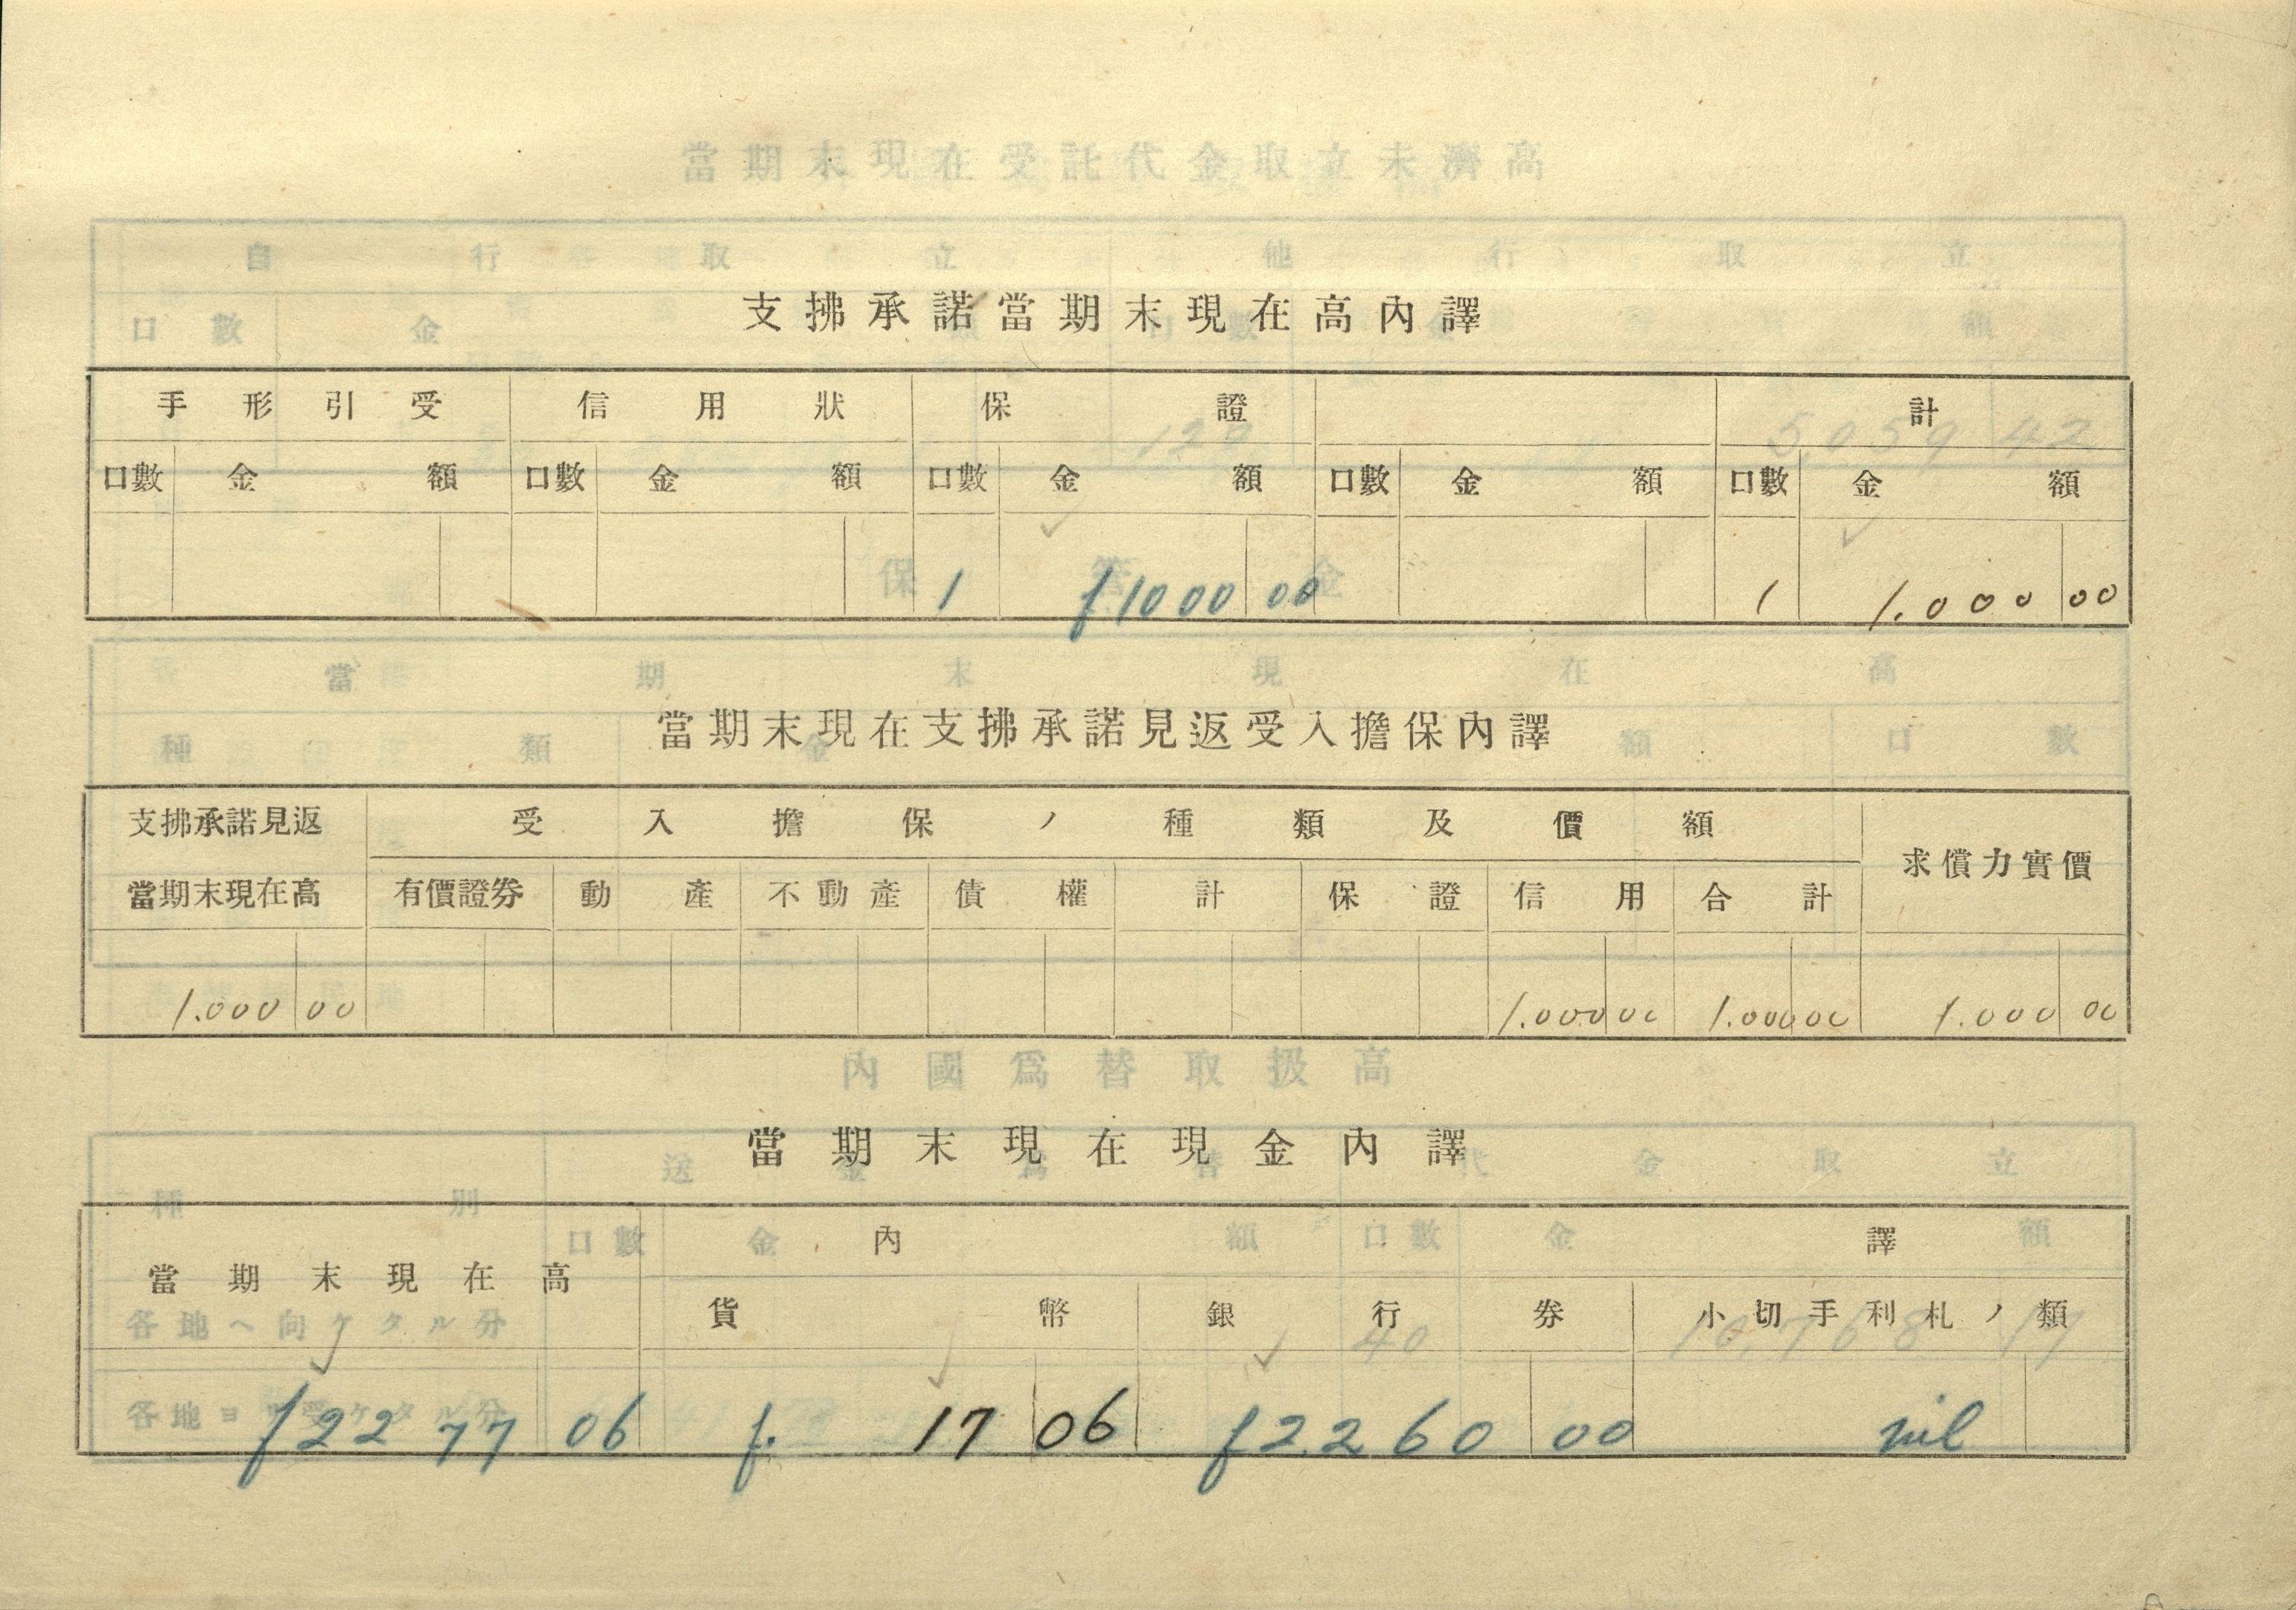 支拂承諾當期末現在高內譯
手形引受 信用狀 保證 計
口數 金額 口數 金額 口數 金額 口數 金額 口數 金額
1 f1000 00 1 1.000 00
當期末現在支拂承諾見返受入擔保內譯
支拂承諾見返 受入擔保ノ種類及價額 求償力實價
當期末現在高 有價證券 動產 不動產 債權 計 保證 信用 合計
1.000 00 1.000 00 1.000 00 1.000 00
當期末現在現金內譯
當期末現在高 內譯
貨幣 銀行券 小切手利札ノ類
f2277 06 f. 17 06 f2260 00 nil